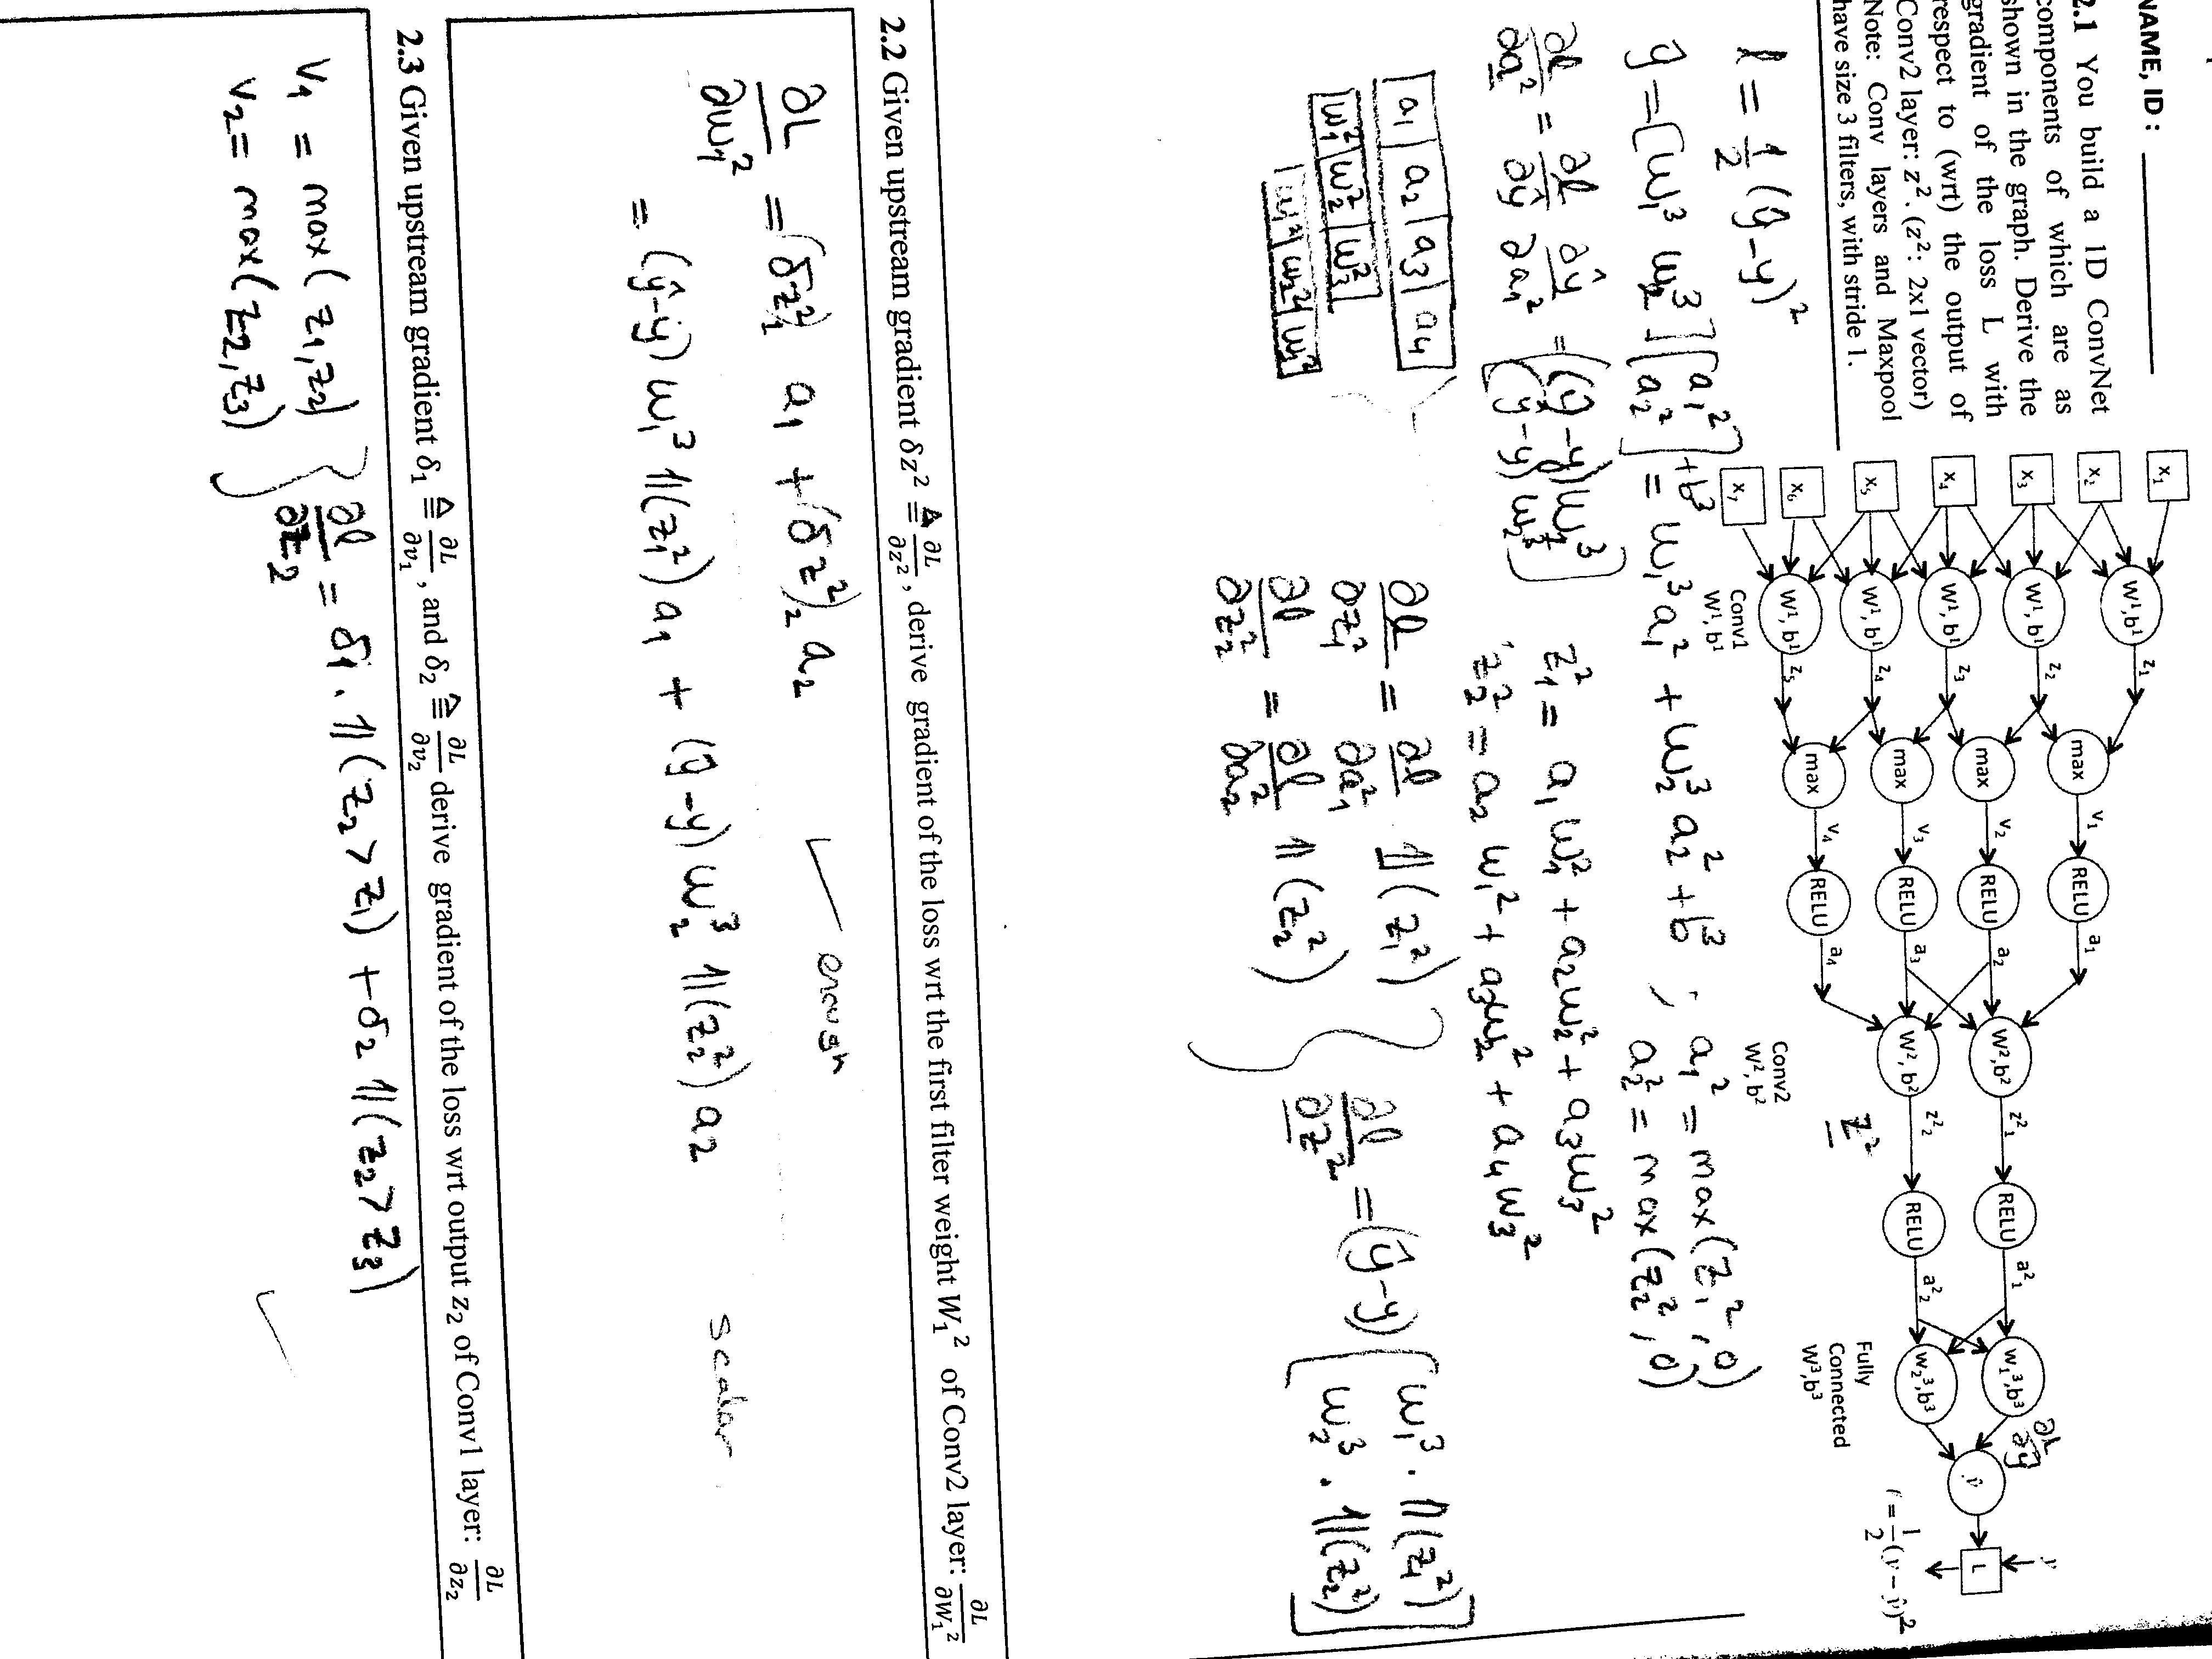 NAME, ID :
2.1 You build a 1D ConvNet
components of which are as
shown in the graph. Derive the
gradient of the loss L with
respect to (wrt) the output of
Conv2 layer: z². (z²: 2x1 vector)
Note: Conv layers and Maxpool
have size 3 filters, with stride 1.
x₁
x₂
x₃
x₄
x₅
x₆
x₇
W¹,b¹
W¹, b¹
W¹, b¹
W¹, b¹
W¹, b¹
Conv1
W¹, b¹
z₁
z₂
z₃
z₄
z₅
max
max
max
max
v₁
v₂
v₃
v₄
RELU
RELU
RELU
RELU
a₁
a₂
a₃
a₄
W²,b²
W², b²
Conv2
W², b²
z²₁
z²₂
z²
RELU
RELU
a²₁
a²₂
w₁³,b³
w₂³,b³
Fully
Connected
W³,b³
∂L/∂ŷ
ŷ
L
l = 1/2 (ŷ-y)²
ŷ = [w₁³ w₂³] [a₁² a₂²] + b³ = w₁³a₁² + w₂³a₂² + b³ , a₁² = max(z₁², 0)
a₂² = max(z₂², 0)
∂l/∂a² = ∂l/∂ŷ ∂ŷ/∂a₁² = [(ŷ-y)w₁³ (ŷ-y)w₂³]
z₁² = a₁w₁² + a₂w₂² + a₃w₃²
z₂² = a₂w₁² + a₃w₂² + a₄w₃²
a₁ a₂ a₃ a₄
w₁² w₂² w₃²
w₁² w₂² w₃²
∂l/∂z₁² = ∂l/∂a₁² 𝟙(z₁²)
∂l/∂z₂² = ∂l/∂a₂² 𝟙(z₂²)
∂l/∂z² = (ŷ-y) [w₁³ · 𝟙(z₁²) w₂³ · 𝟙(z₂²)]
2.2 Given upstream gradient δz² ≜ ∂L/∂z², derive gradient of the loss wrt the first filter weight W₁² of Conv2 layer: ∂L/∂W₁²
∂L/∂w₁² = (δz²)₁ a₁ + (δz²)₂ a₂ ✓ enough
= (ŷ-y) w₁³ 𝟙(z₁²) a₁ + (ŷ-y) w₂³ 𝟙(z₂²) a₂ scalar
2.3 Given upstream gradient δ₁ ≜ ∂L/∂v₁, and δ₂ ≜ ∂L/∂v₂ derive gradient of the loss wrt output z₂ of Conv1 layer: ∂L/∂z₂
v₁ = max(z₁,z₂)
v₂ = max(z₂,z₃)
∂l/∂z₂ = δ₁ · 𝟙(z₂>z₁) + δ₂ 𝟙(z₂>z₃) ✓